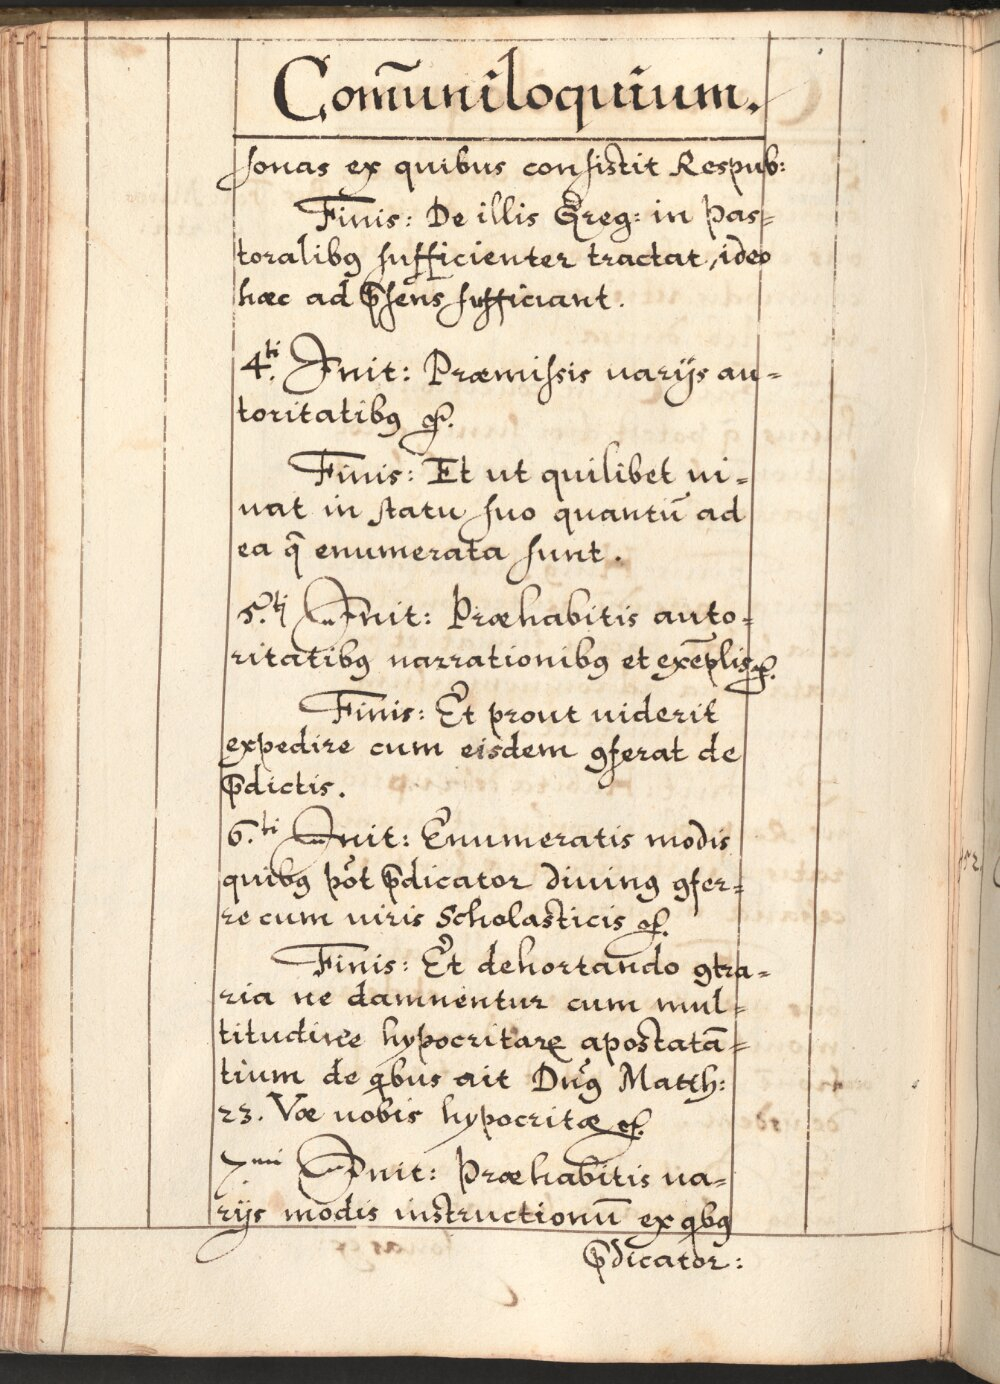 Com̄uniloquium.
sonas ex quibus consistit Respub:
Finis: De illis Greg: in Pas=
toralibꝯ sufficienter tractat, ideo
hæc ad p̄sens sufficiant.
4.ti Init: Præmissis uarijs au=
toritatibꝯ &c.
Finis: Et ut quilibet ui=
uat in statu suo quantū ad
ea q̄ enumerata sunt.
5.ti Init: Præhabitis auto=
ritatibꝯ narrationibꝯ et exēplis &c.
Finis: Et prout uiderit
expedire cum eisdem ꝯferat de
p̄dictis.
6.ti Init: Enumeratis modis
quibꝯ põt p̄dicator diuinꝯ ꝯfer=
re cum uiris Scholasticis &c.
Finis: Et dehortando ꝯtra=
ria ne damnentur cum mul=
titudine hypocritarꝝ apostatā=
tium de qbus ait Dn̄ꝯ Matth:
23. Væ uobis hypocritæ &c.
7.mi Init: Præhabitis ua=
rijs modis instructionū ex qbꝯ
p̄dicator: